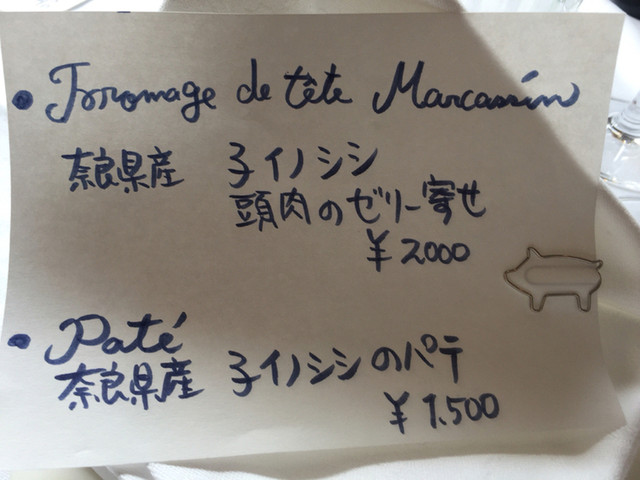 • Fromage de tête Marcassin
奈良県産 子イノシシ
頭肉のゼリー寄せ
¥2000
• Paté
奈良県産 子イノシシのパテ
¥1.500